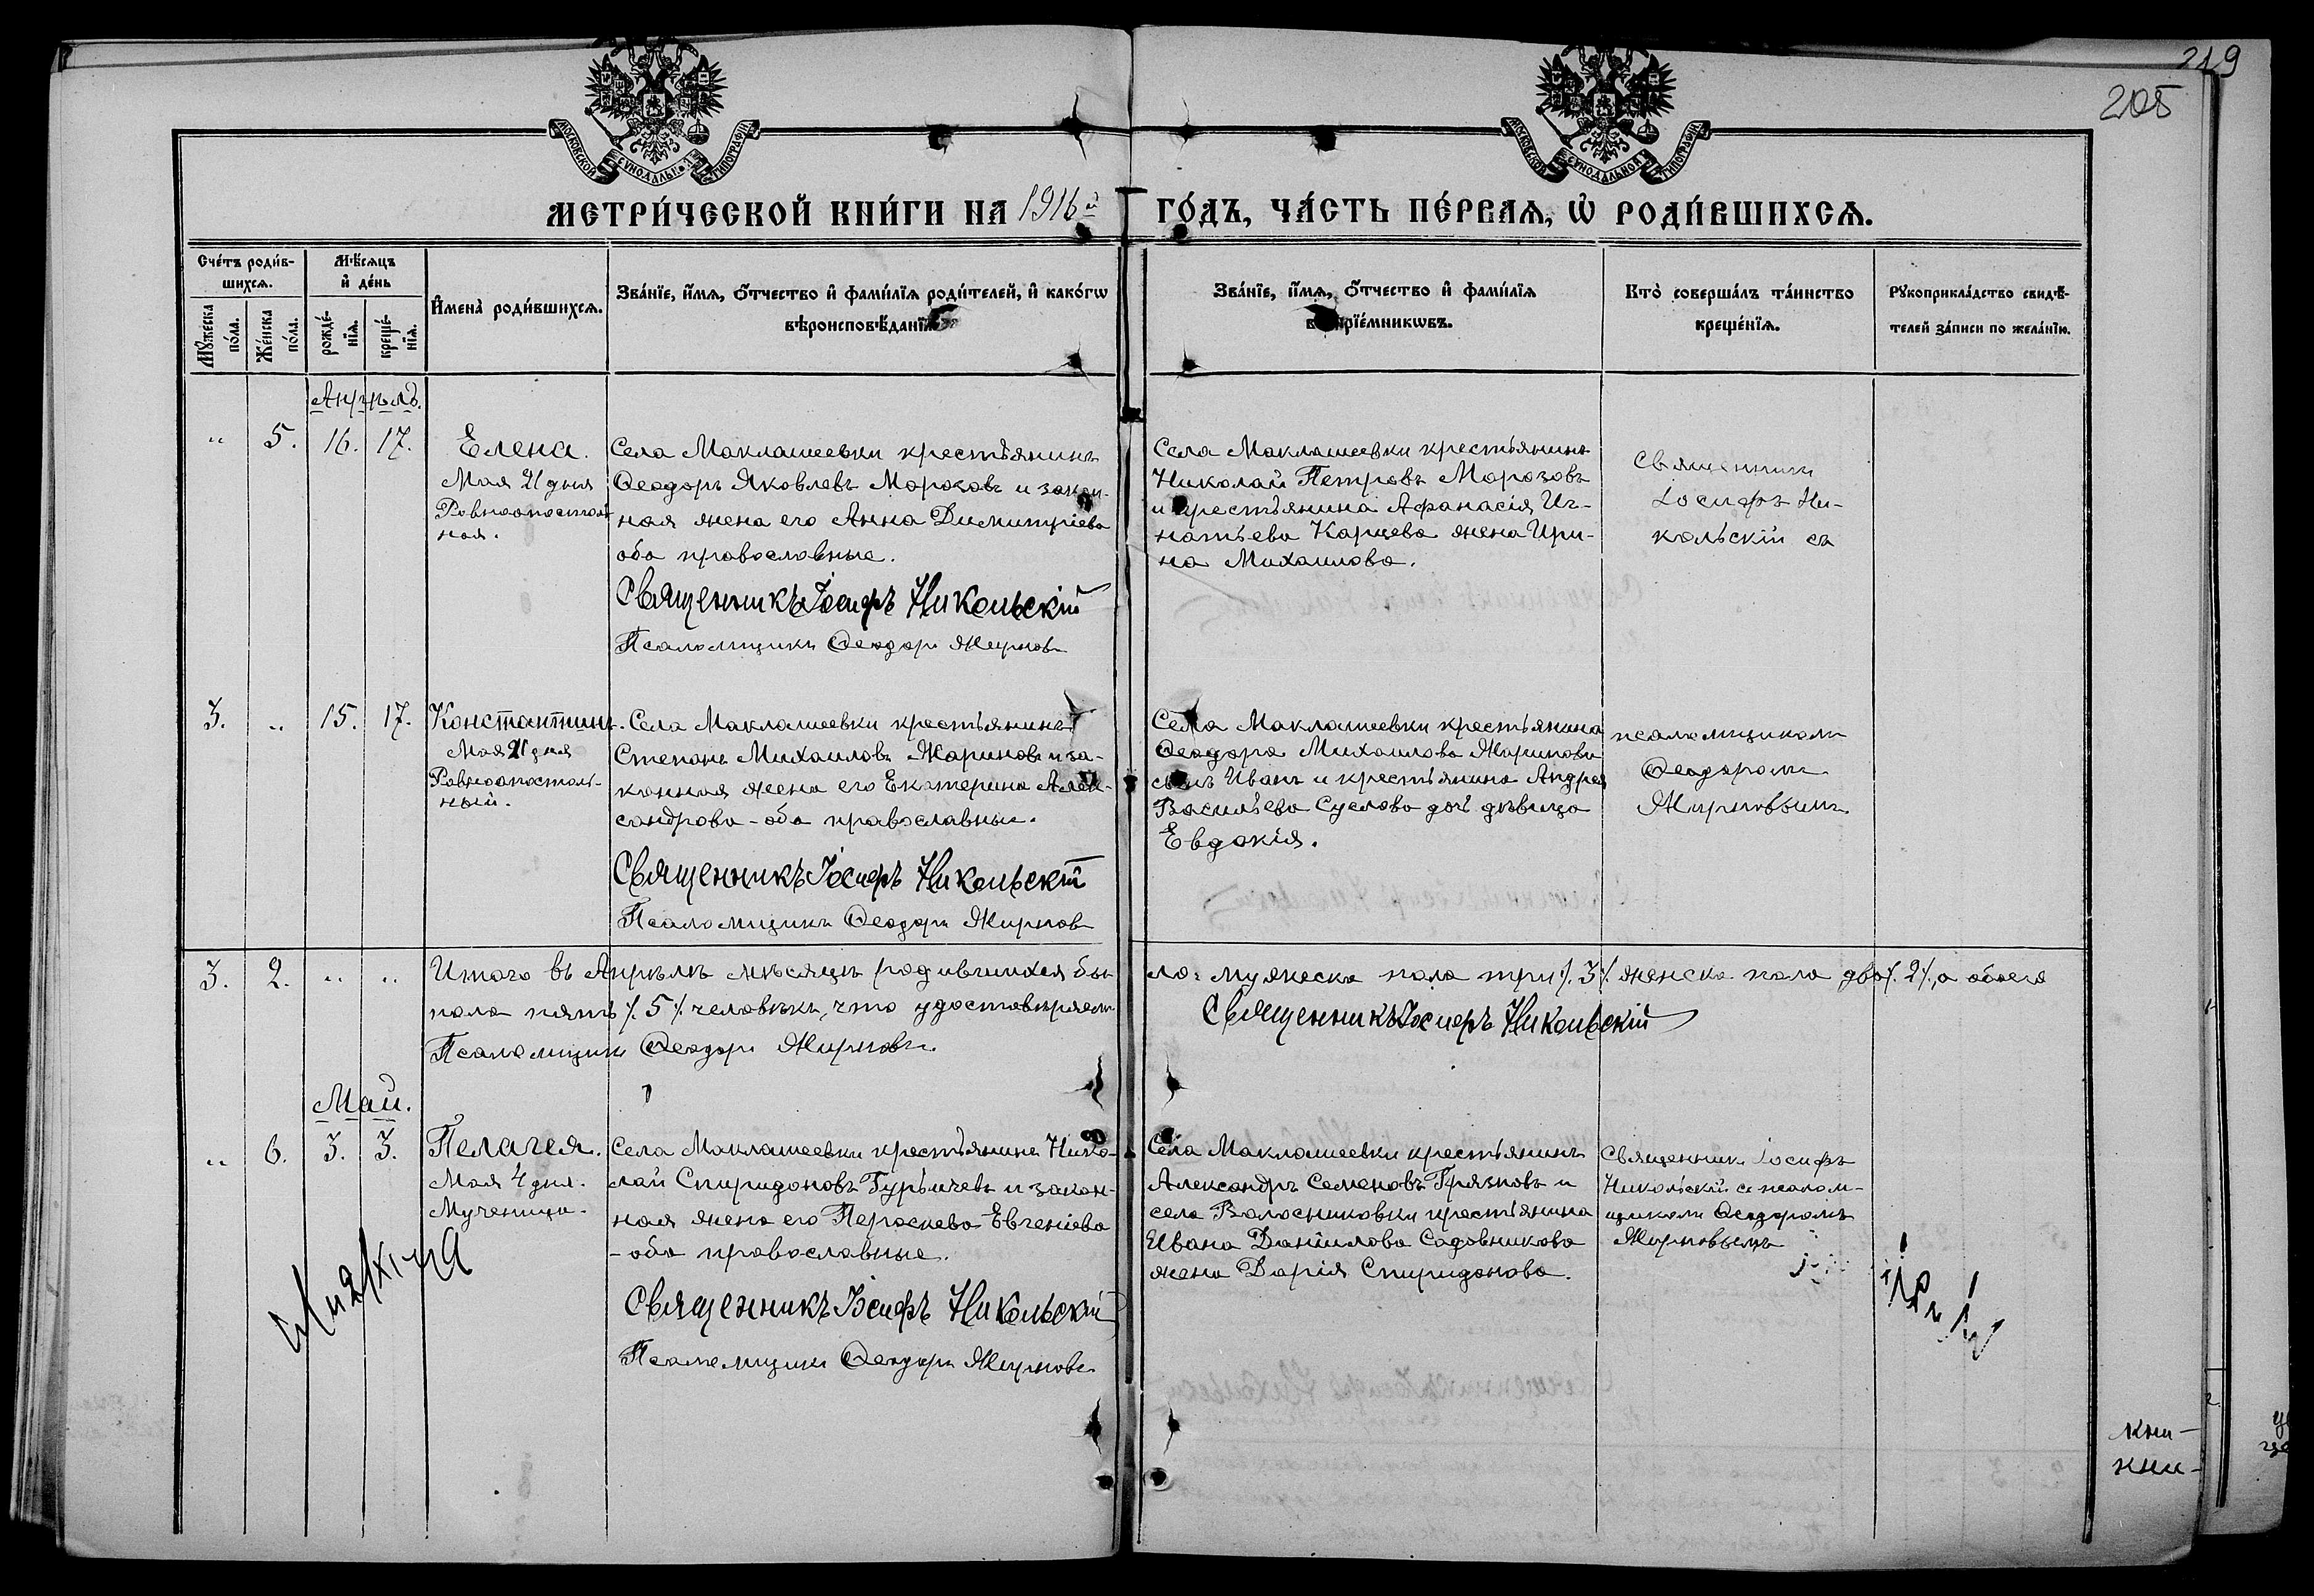 219
205
МОСКОВСКОЙ СѴНОДАЛЬНОЙ ТИПОГРАФІИ
МОСКОВСКОЙ СѴНОДАЛЬНОЙ ТИПОГРАФІИ
МЕТРИ́ЧЕСКОЙ КНИ́ГИ НА 1916й ГО́ДЪ, ЧА́СТЬ ПЕ́РВАѦ, Ѡ҆ РОДИ́ВШИХСѦ.
Сче́тъ роди́в-
шихсѧ.
Мꙋ́жеска по́ла.
Же́нска по́ла.
Мѣ́сѧцъ
и҆ де́нь
рожде́-
нїѧ.
креще́-
нїѧ.
И҆мена̀ роди́вшихсѧ.
Зва́нїе, и҆́мѧ, ѻ҆́тчество и҆ фами́лїѧ роди́телей, и҆ како́гѡ
вѣроисповѣ́данїѧ.
Зва́нїе, и҆́мѧ, ѻ҆́тчество и҆ фами́лїѧ
воспрїе́мникѡвъ.
Кто̀ соверша́лъ та́инство
креще́нїѧ.
Рꙋкоприкла́дство свидѣ́-
телей за́писи по жела́нїю.
Апрѣль.
" 5. 16. 17.
Елена.
Мая 21 дня
Равноапостоль
ная.
Села Маклашеевки крестьянинъ
Ѳеодоръ Яковлевъ Морозовъ и закон-
ная жена его Анна Димитріева
оба православные.
Священникъ Іосифъ Никольскій
Псаломщикъ Ѳеодоръ Жирновъ
Села Маклашеевки крестьянинъ
Николай Петровъ Морозовъ
и крестьянина Афанасія Иг-
натьева Карцева жена Ири-
на Михаилова.
Священникъ
Іосифъ Ни-
кольскій съ
3. " 15. 17.
Константинъ.
Мая 21 дня
Равноапостоль-
ный.
Села Маклашеевки крестьянинъ
Степанъ Михаиловъ Жариновъ и за-
конная жена его Екатерина Алек-
сандрова - оба православные.
Священникъ Іосифъ Никольскій
Псаломщикъ Ѳеодоръ Жирновъ
Села Маклашеевки крестьянина
Ѳеодора Михаилова Жаринова
сынъ Иванъ и крестьянина Андрея
Васильева Суслова дочь дѣвица
Евдокія.
псаломщикомъ
Ѳеодоромъ
Жирновымъ
3. 2. " "
Итого въ Апрѣлѣ мѣсяцѣ родившихся бы-
ло: мужеска пола три /.3/. женска пола два /.2/., а обоего
пола пять /.5/. человѣкъ, что удостовѣряемъ
Священникъ Іосифъ Никольскій
Псаломщикъ Ѳеодоръ Жирновъ.
Май.
" 6. 3. 3.
Пелагея.
Мая 4 дня.
Мученица.
Села Маклашеевки крестьянинъ Нико-
лай Спиридоновъ Гурьичевъ и закон-
ная жена его Параскева Евгеніева
- оба православные.
Священникъ Іосифъ Никольскій
Псаломщикъ Ѳеодоръ Жирновъ
Села Маклашеевки крестьянинъ
Александръ Семеновъ Грязновъ и
села Волосниковки крестьянина
Ивана Даніилова Садовникова
жена Дарія Спиридонова.
Священникъ Іосифъ
Никольскій съ псалом-
щикомъ Ѳеодоромъ
Жирновымъ
кни-
кни-